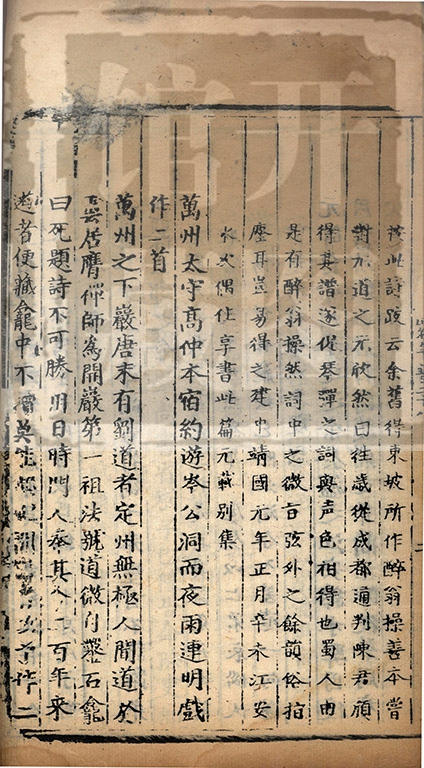 按此詩跋云余舊得東坡所作醉翁操善本嘗
對元道之元欣然曰往歲從成都通判陳君頎
得其譜遂促琴彈之詞與声色相得也蜀人由
是有醉翁操然詞中之微旨弦外之餘韻俗指
塵耳豈易得之建中靖國元年正月辛未江安
水次偶住亭書此篇元載別集
萬州太守高仲本宿約遊岑公洞而夜雨連明戲
作二首
萬州之下巖唐末有劉道者定州無極人聞道於
居膺禪師為開巖第一祖法號道微自鑿石龕
曰死題詩不可勝用日時門人奉其二百年來
遊者便藏龕中不